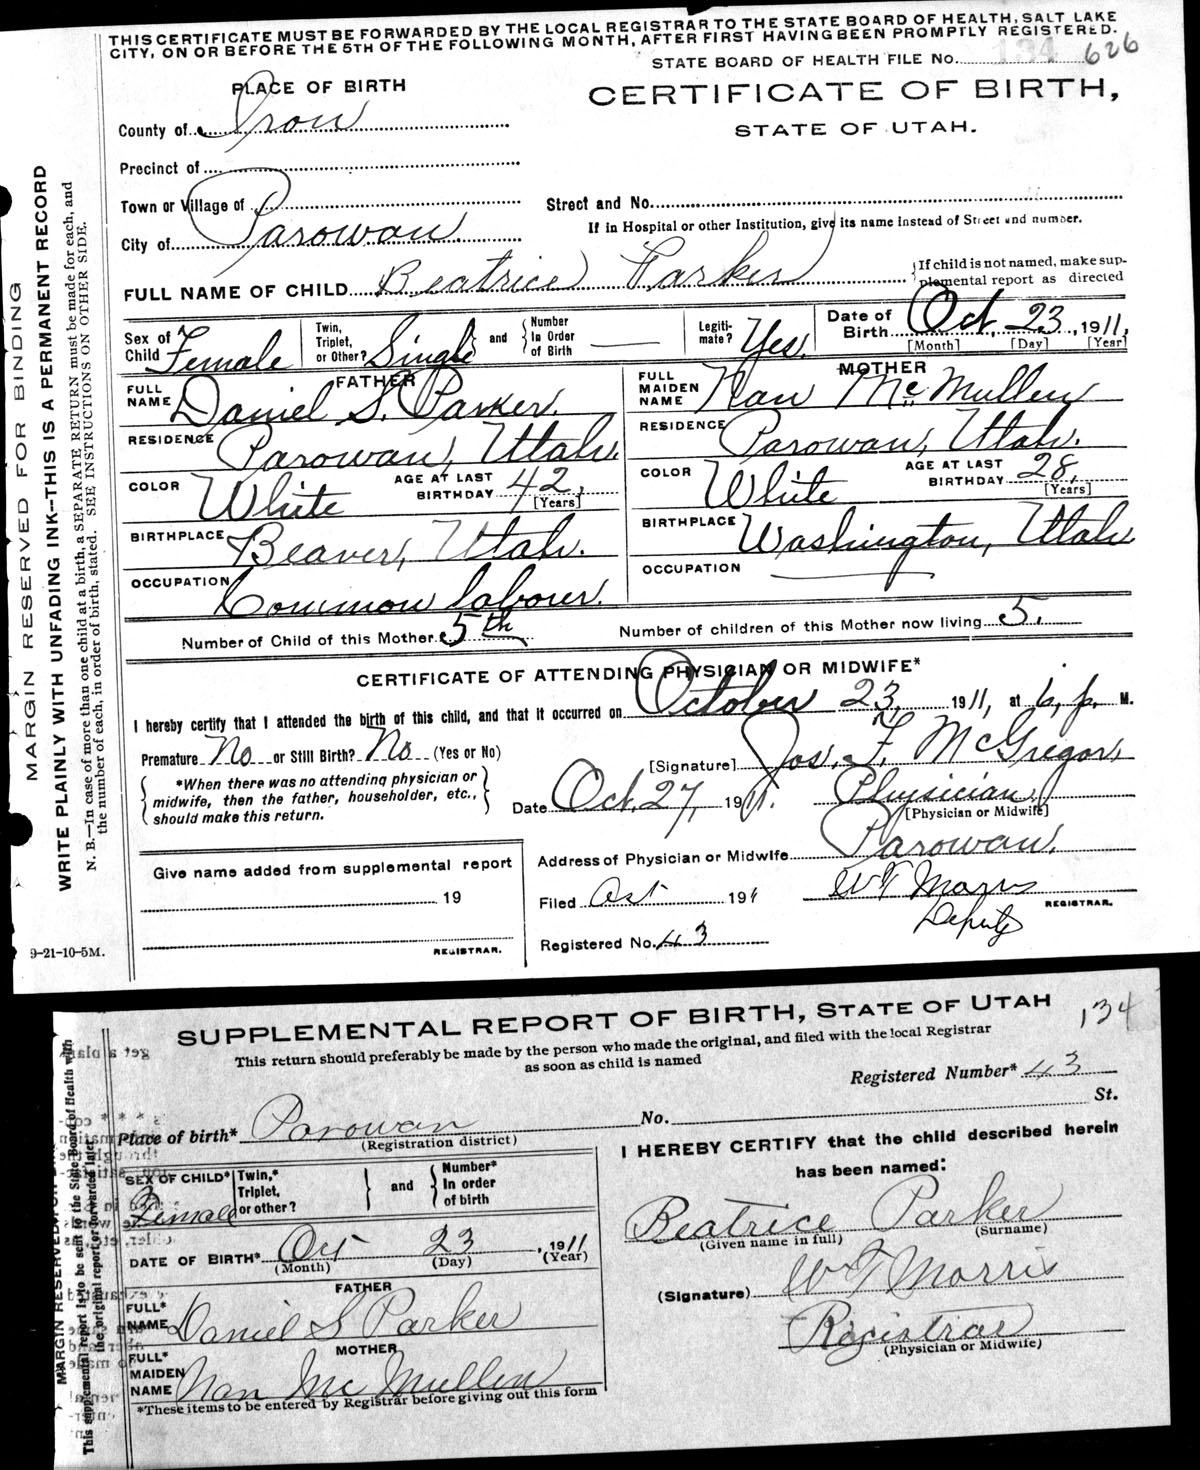 THIS CERTIFICATE MUST BE FORWARDED BY THE LOCAL REGISTRAR TO THE STATE BOARD OF HEALTH, SALT LAKE
CITY, ON OR BEFORE THE 5TH OF THE FOLLOWING MONTH, AFTER FIRST HAVING BEEN PROMPTLY REGISTERED.
STATE BOARD OF HEALTH FILE No. 134 626
PLACE OF BIRTH
CERTIFICATE OF BIRTH,
STATE OF UTAH.
County of Iron
Precinct of
Town or Village of
Street and No.
If in Hospital or other Institution, give its name instead of Street and number.
City of Parowan.
FULL NAME OF CHILD Beatrice Parker
If child is not named, make sup-
plemental report as directed
Sex of Child Female
Twin, Triplet, or Other? Single
and
Number In Order of Birth
Legiti- mate? Yes.
Date of Birth Oct. 23, 1911,
[Month] [Day] [Year]
FATHER
FULL NAME Daniel S. Parker.
RESIDENCE Parowan, Utah.
COLOR White
AGE AT LAST BIRTHDAY 42, [Years]
BIRTHPLACE Beaver, Utah.
OCCUPATION Common labour.
MOTHER
FULL MAIDEN NAME Nan McMullen
RESIDENCE Parowan, Utah.
COLOR White
AGE AT LAST BIRTHDAY 28, [Years]
BIRTHPLACE Washington, Utah
OCCUPATION
Number of Child of this Mother 5th
Number of children of this Mother now living 5.
CERTIFICATE OF ATTENDING PHYSICIAN OR MIDWIFE*
I hereby certify that I attended the birth of this child, and that it occurred on October 23, 1911, at 6, p. M.
Premature No or Still Birth? No (Yes or No)
[Signature] Jos. F. McGregor,
*When there was no attending physician or
midwife, then the father, householder, etc.,
should make this return.
Date Oct. 27, 1911. Physician,
[Physician or Midwife]
Address of Physician or Midwife Parowan.
Give name added from supplemental report
19
REGISTRAR.
Filed Oct 191 W T Morris
Deputy REGISTRAR.
Registered No. 43
9-21-10-5M.
MARGIN RESERVED FOR BINDING
WRITE PLAINLY WITH UNFADING INK--THIS IS A PERMANENT RECORD
N. B.—In case of more than one child at a birth, a SEPARATE RETURN must be made for each, and
the number of each, in order of birth, stated. SEE INSTRUCTIONS ON OTHER SIDE.
SUPPLEMENTAL REPORT OF BIRTH, STATE OF UTAH
134
This return should preferably be made by the person who made the original, and filed with the local Registrar
as soon as child is named
Registered Number* 43
Place of birth* Parowan
(Registration district)
No. St.
SEX OF CHILD* Female
Twin,* Triplet, or other?
and
Number* In order of birth
DATE OF BIRTH* Oct 23, 1911
(Month) (Day) (Year)
FATHER
FULL* NAME Daniel S Parker
MOTHER
FULL* MAIDEN NAME Nan Mc Mullen
*These items to be entered by Registrar before giving out this form
I HEREBY CERTIFY that the child described herein
has been named:
Beatrice Parker
(Given name in full) (Surname)
(Signature) W T Morris
Registrar
(Physician or Midwife)
This supplemental report is to be sent to the State Board of Health with
the original report or forwarded later.